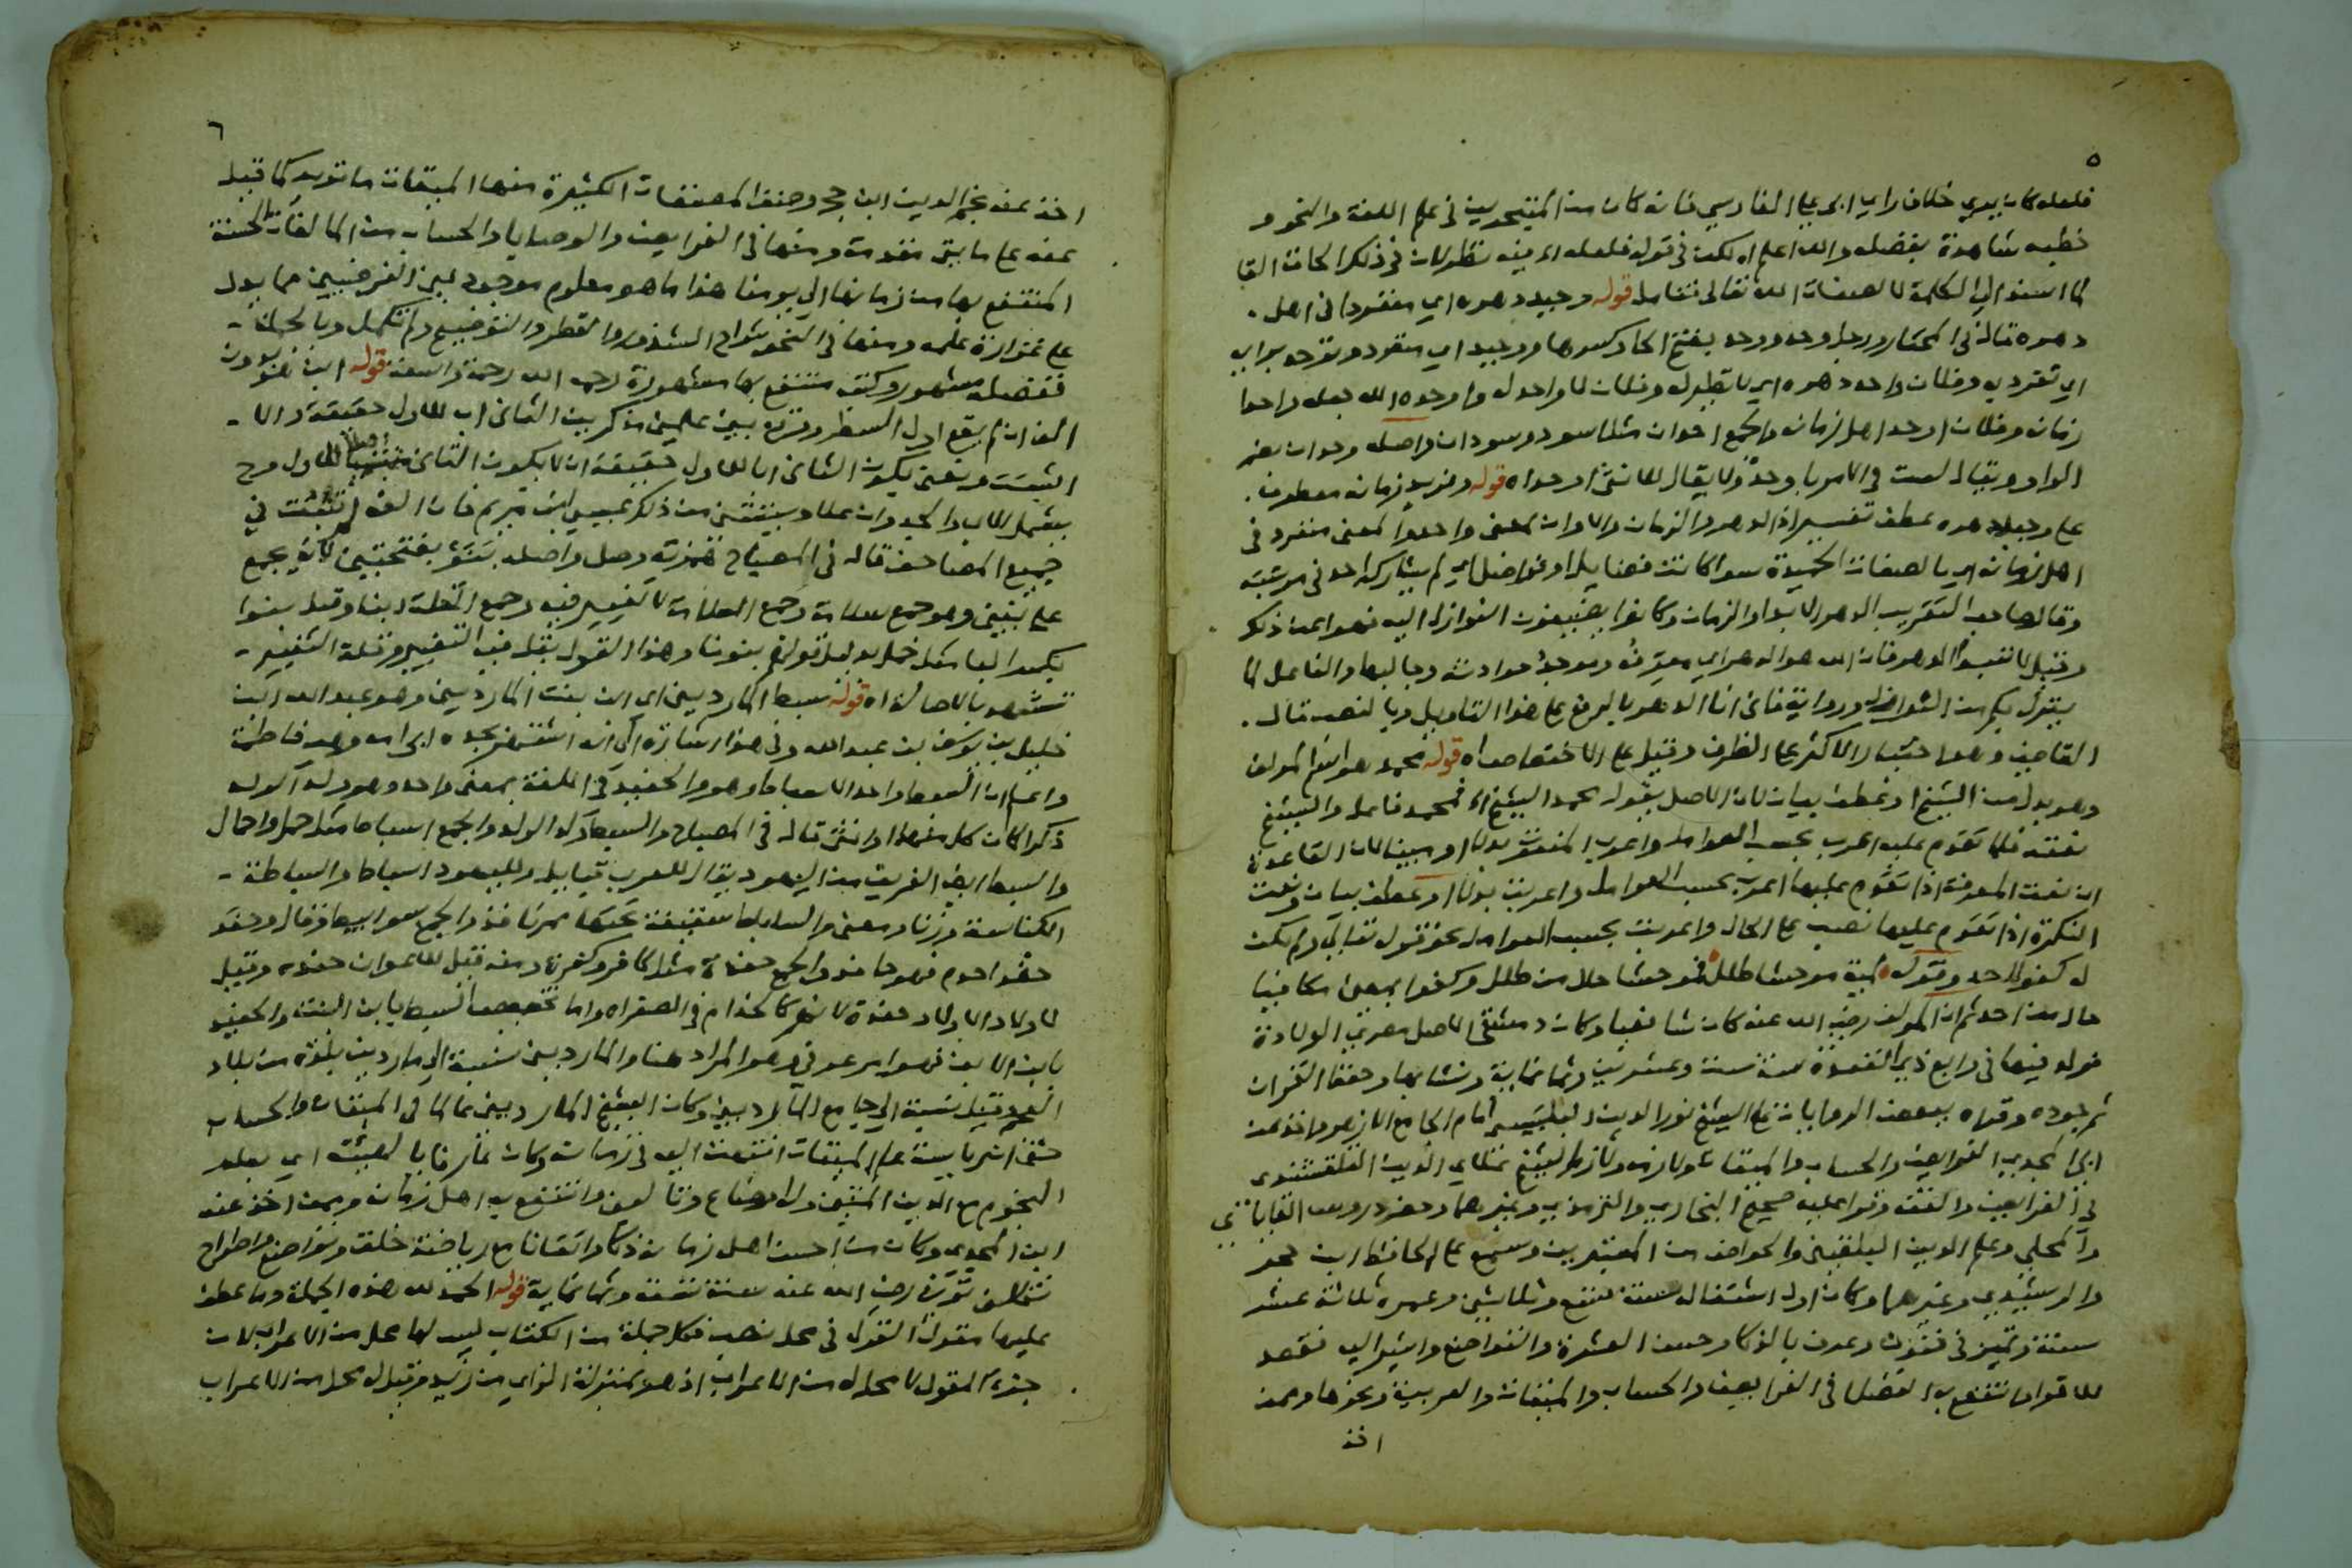 ٥
فلعله كان يري خلاف راي ابي علي الفارسي فانه كان من المتبحرين في علم اللغة والنحو و
خطبه شاهدة بفضله والله اعلم اه لكن في قوله فلعله اه فيه نظر لان في ذلك الحاق
لما اسند الي الكلمة لا لصفات الله تعالى فتامل قوله وحيد دهره اي منفردا في اهل
دهره قال في المختار ورجل وحد ووحد بفتح الحا وكسرها ووحيد اي منفرد وتوحد برايه
اي تفرد به وفلان واحد دهره اي لا نظير له وفلان لا واحد له واوحده الله جعله واحد
زمانه وفلان اوحد اهل زمانه والجمع احدان مثل اسود وسودان واصله وحدان بضم
الواو ويقال لست في الامر باوحد ولا يقال للانثى اوحداء قوله وفريد زمانه معطوف
على وحيد دهره عطف تفسير اذ الدهر والزمان والاوان بمعنى واحد والمعنى منفرد في
اهل زمانه اي بالصفات الحميدة سوا كانت فضايل او فواضل اي لم يشاركه احد في مرتبته
وقال صاحب التقريب الدهر الابد او الزمان وكانوا يضيفون النوازل اليه فنهوا عن ذلك
وقيل لا تسبوا الدهر فان الله هو الدهر اي مصرفه وموجد حوادثه وجالبها والفاعل لما
ينزل بكم من النوازل وروايته فاني انا الدهر بالرفع على هذا التاويل وبالنصب قال
القاضي وهو اختيار الاكثر على الظرف وقيل على الاختصاص اه قوله محمد هو اسم المولف
وهو بدل من الشيخ او عطف بيان لان الاصل يقول محمد الشيخ اه فمحمد فاعل والشيخ
نعته فلما تقدم عليه اعرب بحسب العوامل واعرب المنعوت بدلا او بيانا لان القاعدة
ان نعت المعرفة اذا تقدم عليها اعرب بحسب العوامل واعربت بدلا او عطف بيان ونعت
النكرة اذا تقدم عليها نصب على الحال واعربت بحسب العوامل نحو قوله تعالى ولم يكن
له كفوا احد وقوله لمية موحشا طلل فموحشا حال من طلل وكفوا بمعنى مكافيا
حال من احد ثم ان المولف رضي الله عنه كان شافعيا وكان دمشقي الاصل مصري الولادة
فولد فيها في رابع ذي القعدة سنة ستة وعشرين وثمانماية ونشا بها وحفظ القران
ثم جوده وقراه ببعض الروايات على الشيخ نور الدين البلبيسي امام الجامع الازهر واخذ عن
ابن المجدي الفرايض والحساب والميقات ولازمه ولازم الشيخ علاي الدين القلقشندي
في الفرايض والفقه وقرا عليه صحيح البخاري والترمذي وغيرهما وحضر دروس القاياتي
والمحلي وعلم الدين البلقيني والخواص من المعتبرين وسمع على الحافظ ابن حجر
والرشيدي وغيرهما وكان اول اشتغاله سنة تسع وثلاثين وعمره ثلاثة عشر
سنة وتميز في فنون وعرف بالذكا وحسن العشرة والتواضع واشير اليه فقصد
للاقراء انتفع به الفضلا في الفرايض والحساب والميقات والعربية ونحوها وممن
اخذ
٦
اخذ عنه نجم الدين ابن حجي وصنف المصنفات الكثيرة منها الميقات ما تويد كما قيل
عنه على مايتي مقدمة ومنها في الفرايض والوصايا والحساب من المولفات الحسنة
المنتفع بها من زمانها الي يومنا هذا ما هو معلوم موجود بين الفرضيين مما يدل
على غزارة علمه ومنها في النحو شراح الشذور والقطر والتوضيح ولم تكمل وبالجملة
ففضله مشهور وكتبه منتفع بها مشهورة رحمه الله رحمة واسعة قوله ابن بدون
الف ان لم يقع اول السطر ووقع بين علمين مذكرين الثاني اب للاول حقيقة والا
اثبتت ونعني بكون الثاني ابا للاول حقيقة ان لا يكون الثاني اجنبيا للاول وح
يشمل الاب والجد وان علا ويستثنى من ذلك عيسى ابن مريم فان الفه تثبت في
جميع المصاحف قاله في المصباح همزته وصل واصله بنو بفتحتين لانه يجمع
على بنين وهو جمع سلامة وجمع السلامة لا تغيير فيه وجمع القلة ابناء وقيل بنو
بكسر الباء مثل حمل بدليل قولهم بنت وهذا القول يقل فيه التغيير وقلة التغيير
تشهد بالاصالة اه قوله سبط المارديني اي ابن بنت المارديني وهو عبد الله ابن
خليل بن يوسف بن عبد الله وفي هذا اشارة الى انه اشتهر بجده ابي امه وهي فاطمة
واعلم ان السبط واحد الاسباط وهو والحفيد في اللغة بمعنى واحد وهو ولد الولد
ذكرا كان كل منهما او انثى قاله في المصباح والسبط ولد الولد والجمع اسباط مثل حمل واحمال
والسبط ايضا الفريق من اليهود يقال للعرب قبايل ولليهود اسباط والسباطة
الكناسة وزنا ومعنى والساباط سقيفة تحتها ممر نافذ والجمع سوابيط وقال وحفد
حفدا خدم فهو حافد والجمع حفدة مثل كافر وكفرة ومنه قيل للاعوان حفدة وقيل
لاولاد الاولاد حفدة لانهم كالخدام في الصغر اه واما تخصيص السبط بابن البنت والحفيد
بابن الابن فهو امر عرفي وهو المراد هنا والمارديني نسبة الي ماردين بلدة من بلاد
العجم وقيل نسبة الي جامع المارديني وكان الشيخ المارديني عالما في الميقات والحساب
حتى الرياسة علم الميقات انتهت اليه في زمانه وكان عارفا بالهيئة اي بعلم
النجوم مع الدين المتين وله اوضاع وتاليف وانتفع به اهل زمانه وممن اخذ عنه
ابن المجدي وكان من احسن اهل زمانه ذكاء واتقانا مع رياضة خلق وتواضع واطراح
تكلف توفي رضي الله عنه سنة تسعة وثمانماية قوله الحمد لله هذه الجملة وما عطف
عليها مقول القول في محل نصب فكل جملة من الكتاب ليس لها محل من الاعراب لان
جزء المقول لا محل له من الاعراب اذ هو بمنزلة الزاي من زيد وقيل له محل من الاعراب